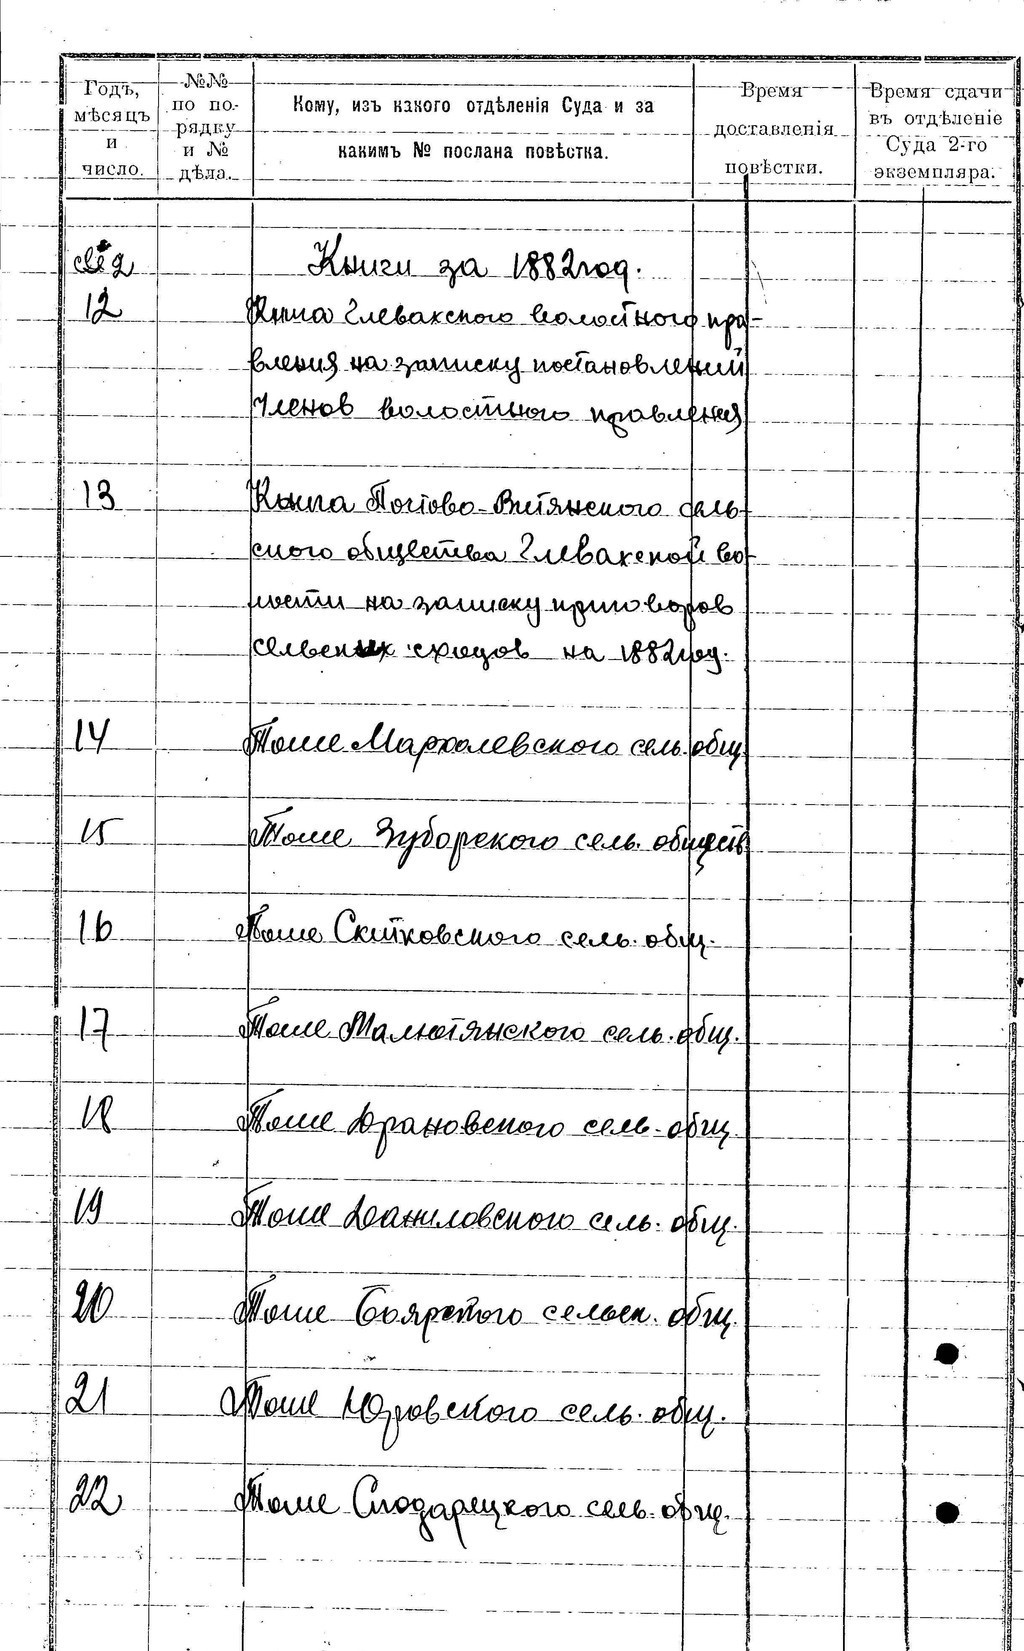 Годъ, мѣсяцъ и число.
№№ по порядку и № дѣла.
Кому, изъ какого отдѣленія Суда и за
какимъ № послана повѣстка.
Время доставленія повѣстки.
Время сдачи въ отдѣленіе Суда 2-го экземпляра.
Книги за 1882 год.
12 Книга Глевахского волостного пра-
вления на записку постановлений
членов волостного правления
13 Книга Почтово-Витянского сель-
ского общества Глевахской во-
лости на записку приговоров
сельских сходов на 1882 год.
14 Тоже Мархалевского сель. общ.
15 Тоже Зуборского сель. обществ
16 Тоже Скитковского сель. общ.
17 Тоже Малютянского сель. общ.
18 Тоже Крановского сель. общ.
19 Тоже Даниловского сель. общ.
20 Тоже Боярского сельск. общ.
21 Тоже Юровского сель. общ.
22 Тоже Сподарецкого сель. общ.